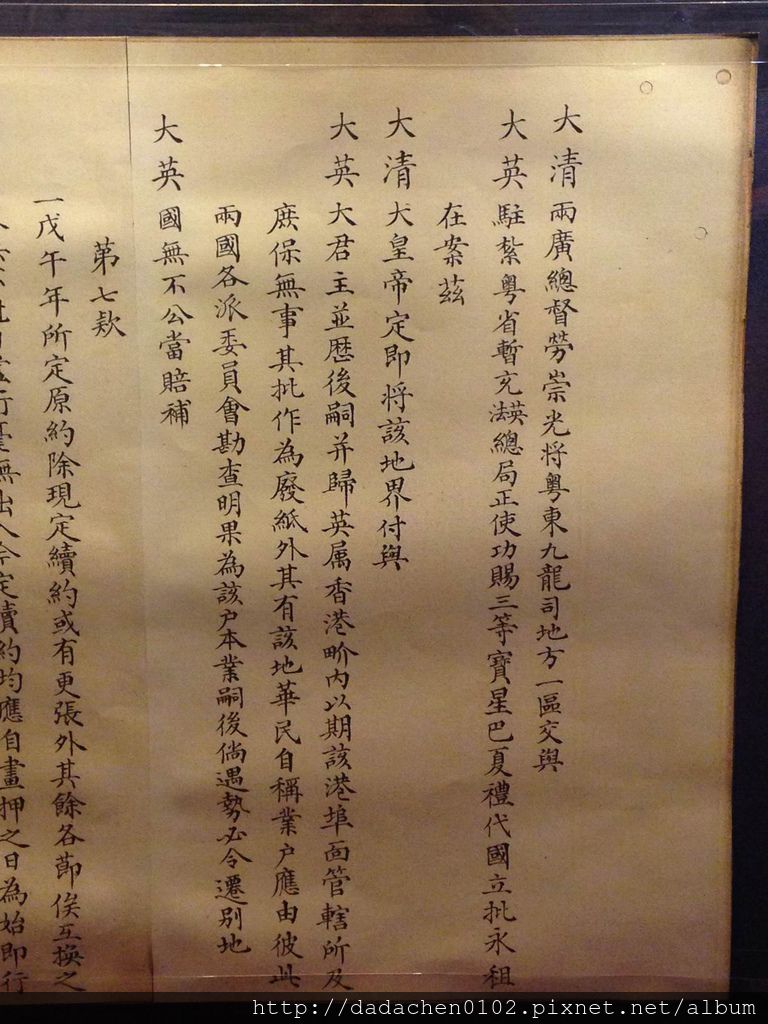 大清兩廣總督勞崇光將粵東九龍司地方一區交與
大英駐紮粵省暫充英法總局正使功賜三等寶星巴夏禮代國立批永租
在案茲
大清大皇帝定即將該地界付與
大英大君主並歷後嗣并歸英屬香港界內以期該港埠面管轄所及
庶保無事其批作為廢紙外其有該地華民自稱業戶應由彼此
兩國各派委員會勘查明果為該戶本業嗣後倘遇勢必令遷別地
大英國無不公當賠補
第七款
一戊午年所定原約除現定續約或有更張外其餘各節俟互換之
行毫無出入今定續約均應自畫押之日為始即行
http://dadachen0102.pixnet.net/album